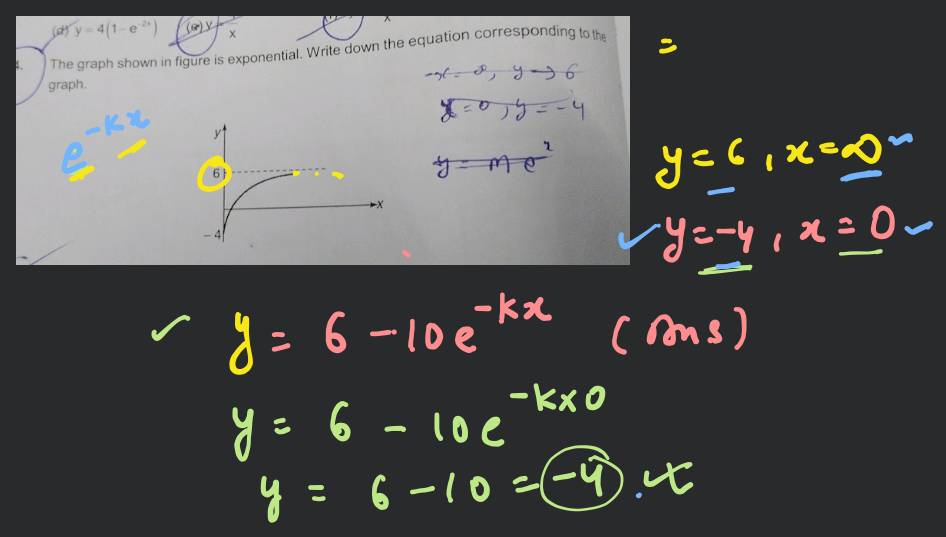 (d) y = 4(1 - e⁻²ˣ)
(e) y =
x
x
4.
The graph shown in figure is exponential. Write down the equation corresponding to the
graph.
x = ∞, y → 6
x = 0, y = -4
y = m e^x
e^-kx
y
6
x
-4
=
y = 6, x = ∞
y = -4, x = 0
y = 6 - 10e^-kx (Ans)
y = 6 - 10e^-k×0
y = 6 - 10 = -4.